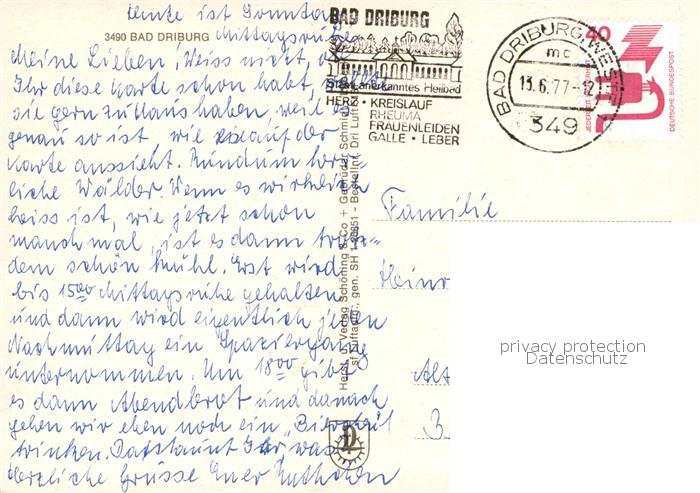 Heute ist Sonntag
3490 BAD DRIBURG
Mittagsruhe
Meine Lieben! Weiss nicht, ob
Ihr diese Karte schon habt, sollt
sie gern zu Haus haben, weil es
genau so ist, wie es auf der
Karte aussieht. Rundum herr-
liche Wälder. Wenn es wirklich
heiss ist, wie jetzt schon
manchmal, ist es dann trotz-
dem schön kühl. Erst wird
bis 15.00 Mittagsruhe gehalten
und dann wird eigentlich jeden
Nachmittag ein Spaziergang
unternommen. Um 18.00 gibt
es dann Abendbrot und danach
gehen wir eben noch ein „Bierchen"
trinken. Da staunt Ihr, was
Herzliche Grüsse Euer
BAD DRIBURG
Staatl. anerkanntes Heilbad
HERZ • KREISLAUF
RHEUMA
FRAUENLEIDEN
GALLE • LEBER
BAD DRIBURG, WESTF
mc
13.6.77-12
349
40
JEDERZEIT SICHERHEIT
DEUTSCHE BUNDESPOST
Herst. u. Verlag Schöning & Co + Gebrüder Schmidt
Familie
Heinr
Alt
3
privacy protection
Datenschutz